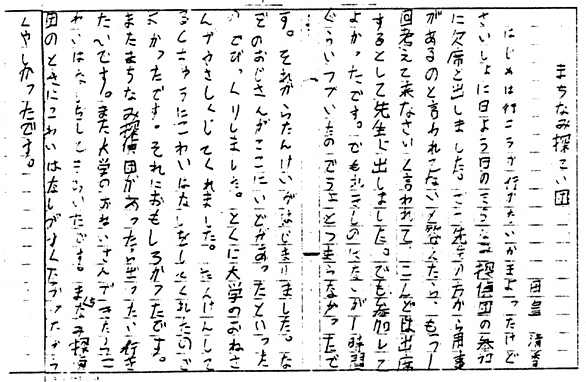 まちなみ探てい団
はじめは行こうか行かないかまよったけど
さいしょに日よう日のまちなみ探偵団の参加
に欠席と出しました。先生の方から用事
があるのと言われてないと答えたら、もう一
回考えて来なさいと言われて、こんどは出席
するとして先生に出しました。でも参加して
よかったです。でも
ぐらいつづいたのでちょっとつまらなかったで
す。それからたんけんがはじまりました。な
どのおじさんがここにいどがあったといった
のでびっくりしました。とくに大学のおねえさ
んがやさしくしてくれました。たんけんして
るとちゅうにこわいはなしをしてくれたので
よかったです。それにおもしろかったです。
またまちなみ探偵団があったらぜったい行き
たいです。また大学のおねいさんがきたらこ
わいはなしをしてもらいたいです。まちなみ探偵
団のときにこわいはなしがすくなかったから
くやしかったです。